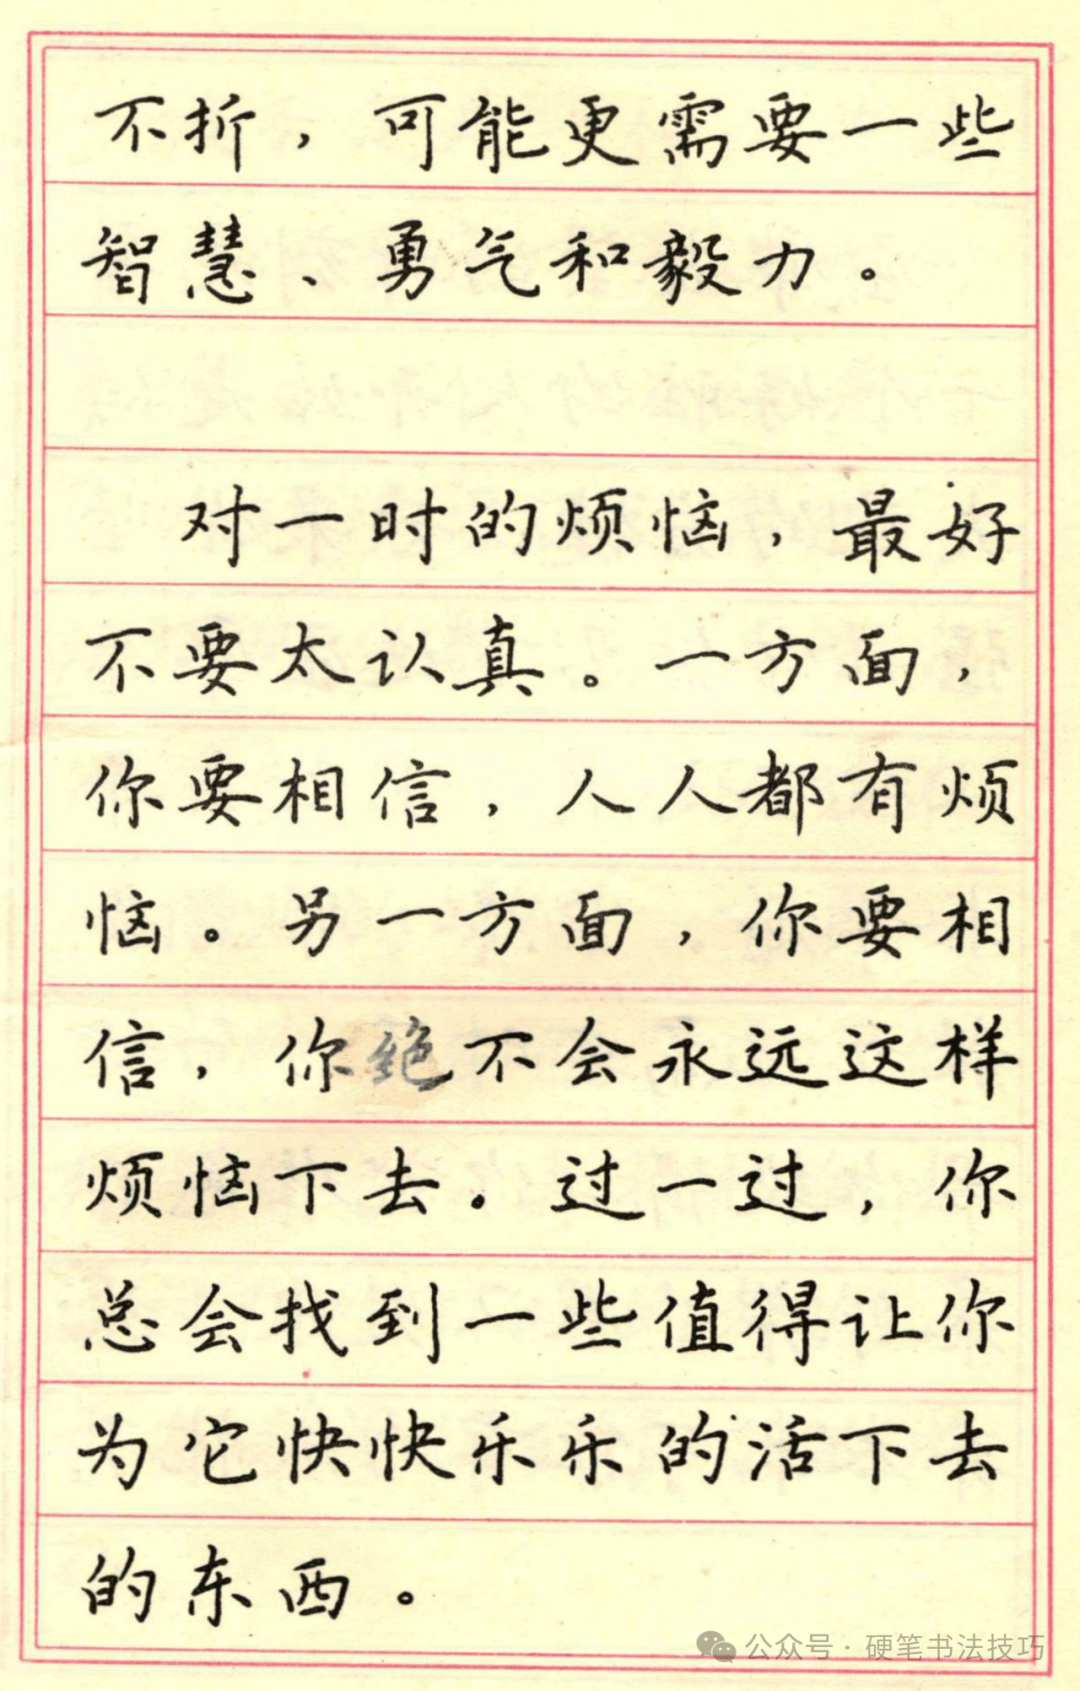 不折，可能更需要一些
智慧、勇气和毅力。
对一时的烦恼，最好
不要太认真。一方面，
你要相信，人人都有烦
恼。另一方面，你要相
信，你绝不会永远这样
烦恼下去。过一过，你
总会找到一些值得让你
为它快快乐乐的活下去
的东西。
公众号·硬笔书法技巧